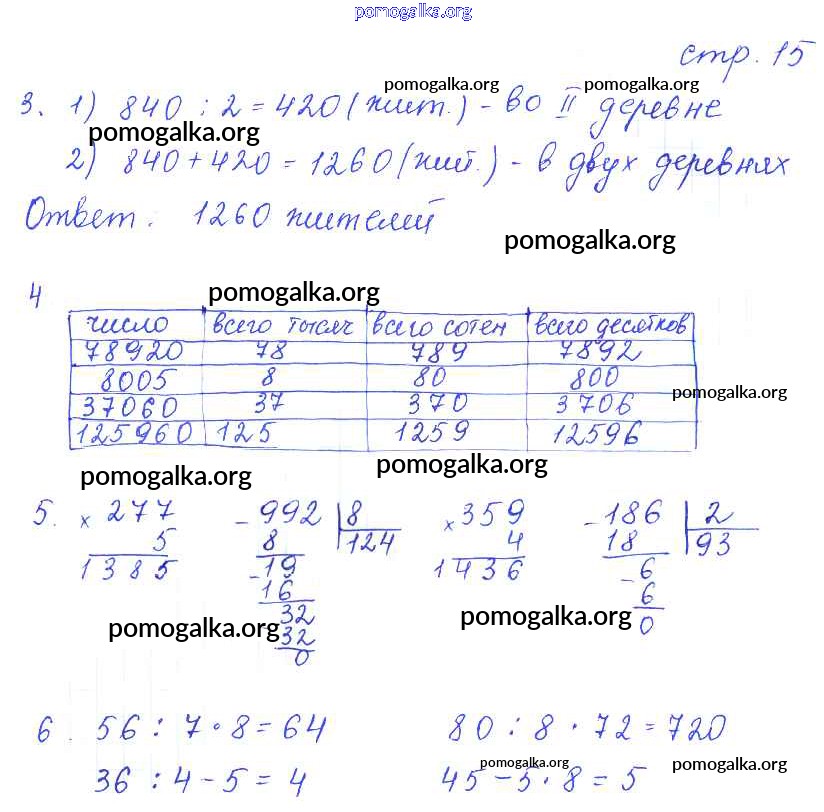 pomogalka.org
стр. 15
pomogalka.org pomogalka.org
3. 1) 840 : 2 = 420 (жит.) - во II деревне
pomogalka.org
2) 840 + 420 = 1260 (жит.) - в двух деревнях
Ответ: 1260 жителей
pomogalka.org
4 pomogalka.org
число всего тысяч всего сотен всего десятков
78920 78 789 7892
8005 8 80 800
pomogalka.org
37060 37 370 3706
125960 125 1259 12596
pomogalka.org pomogalka.org
5. × 277 - 992 8 × 359 - 186 2
5 8 124 4 18 93
1385 - 19 1436 - 6
16 6
32 0
pomogalka.org pomogalka.org
32
0
6. 56 : 7 · 8 = 64 80 : 8 · 72 = 720
pomogalka.org pomogalka.org
36 : 4 - 5 = 4 45 - 5 · 8 = 5